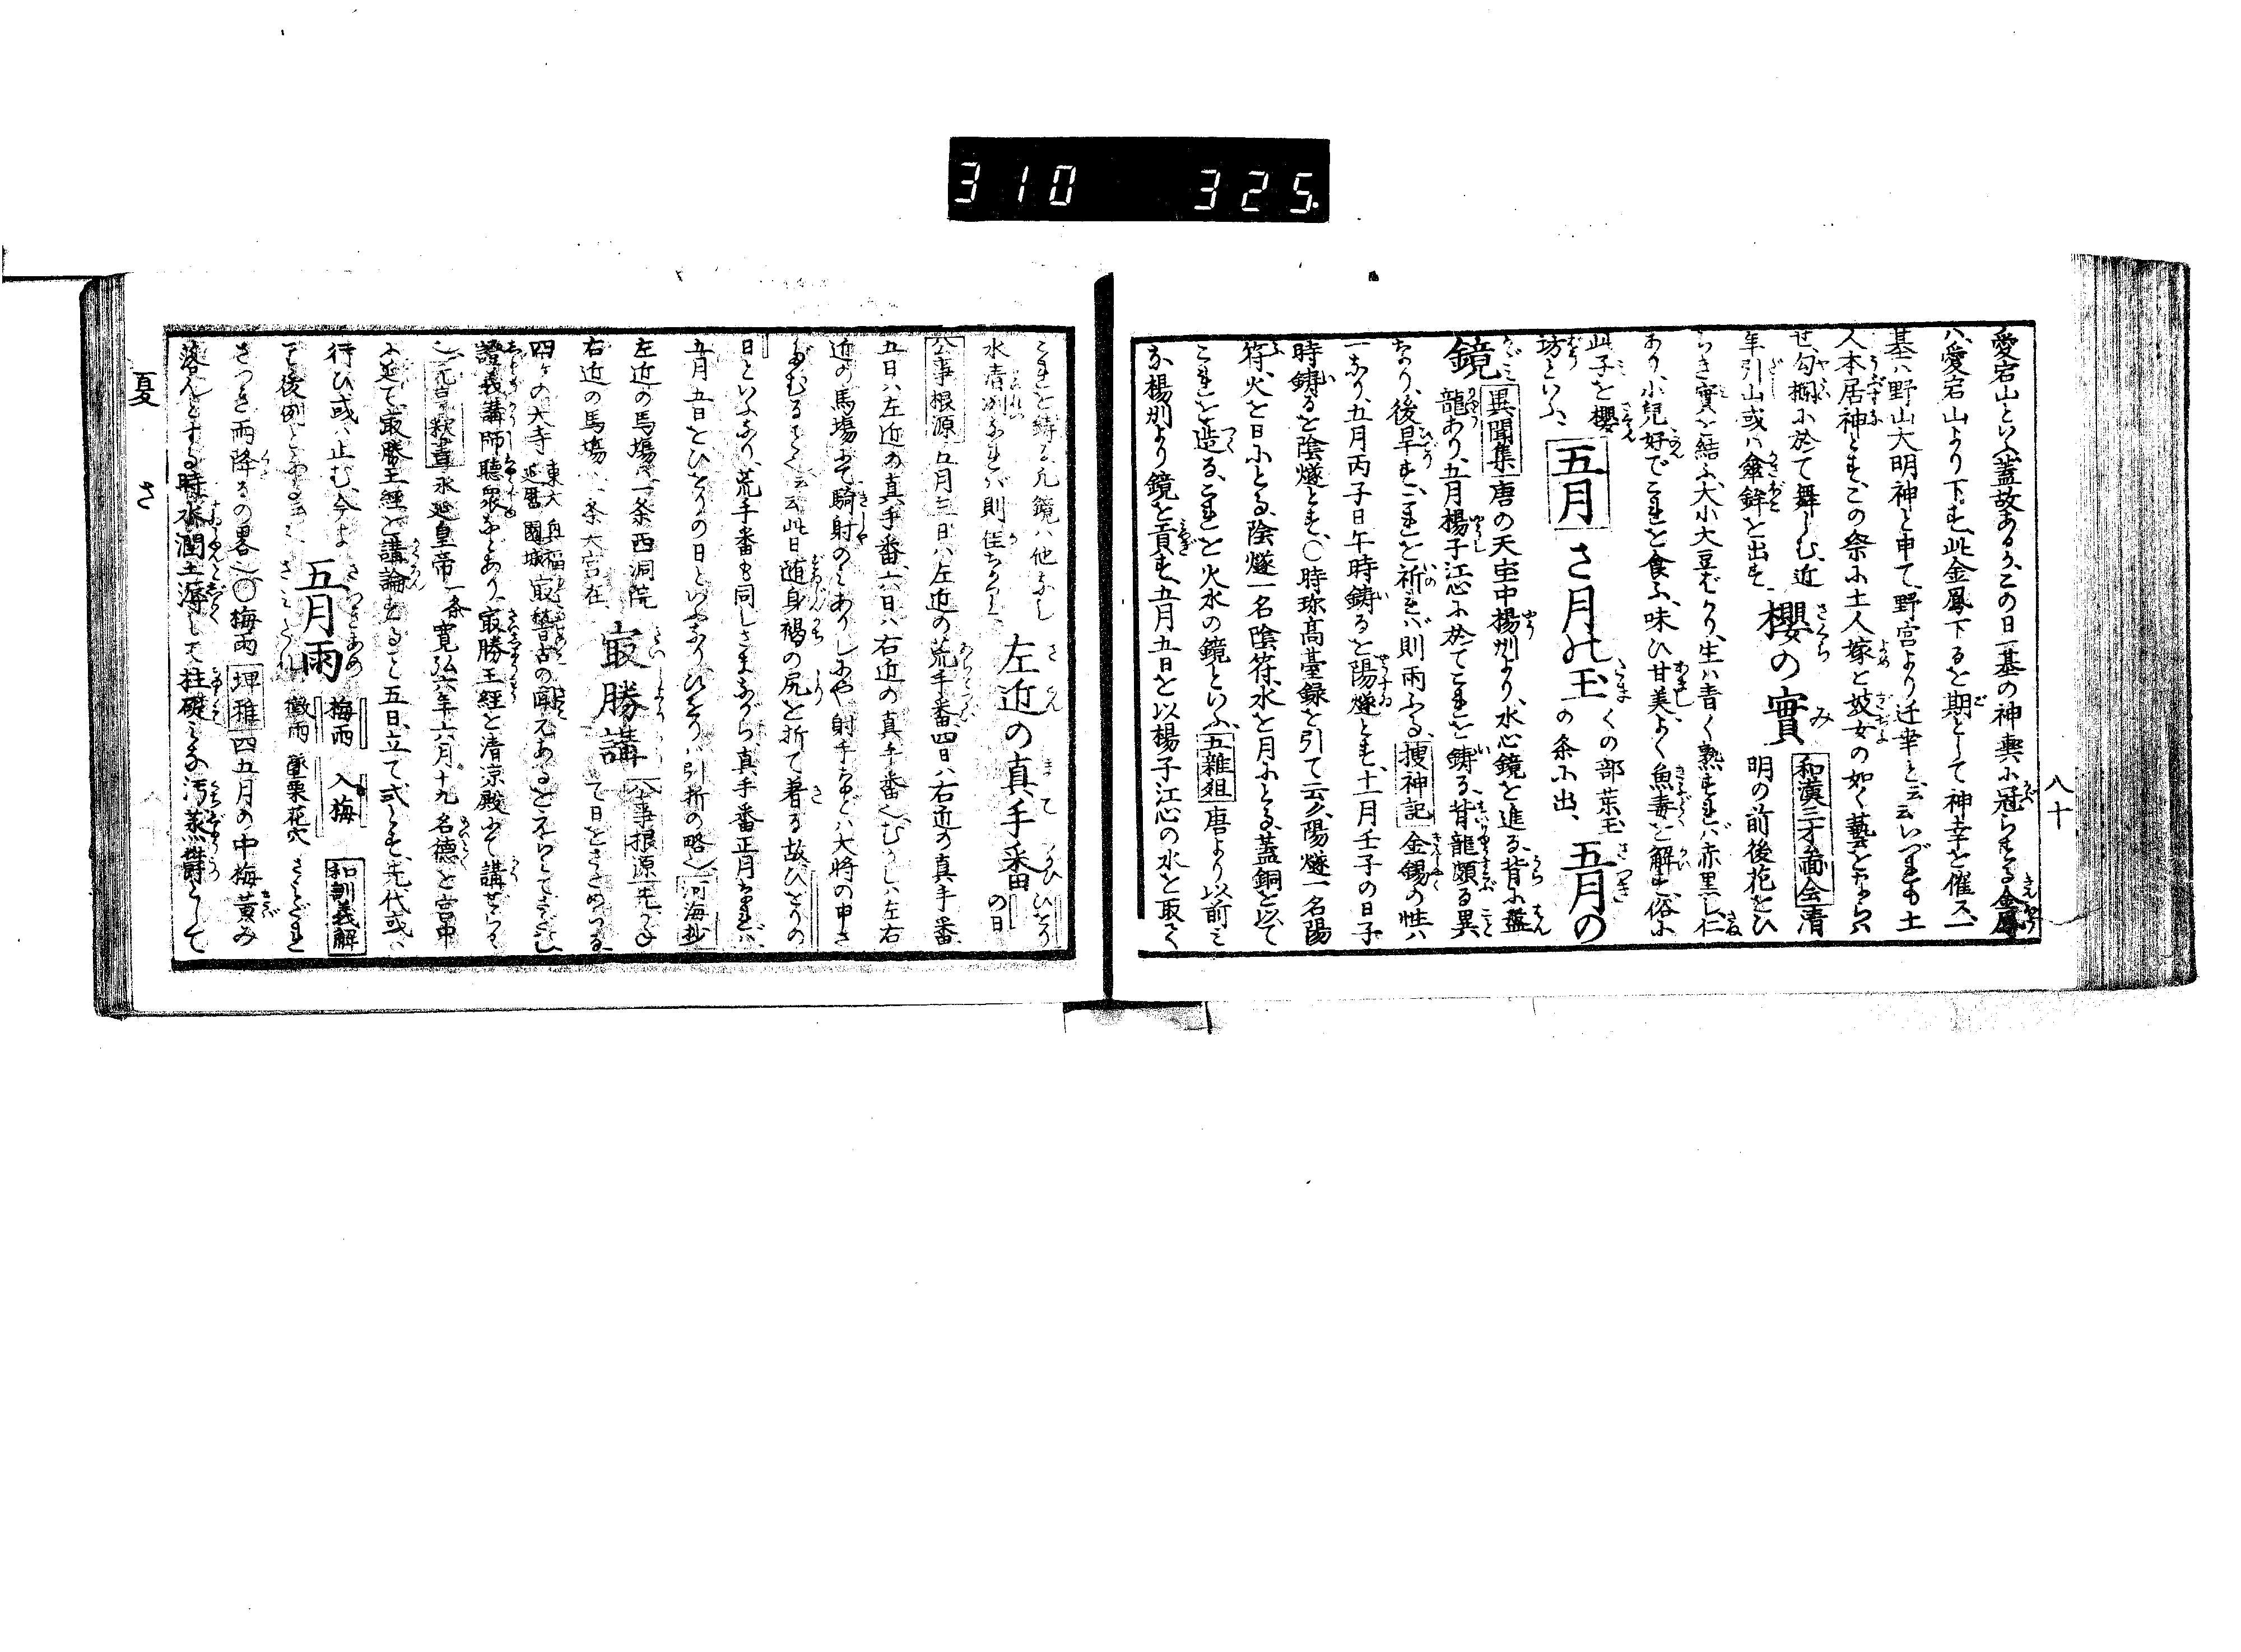 310 325.
八十
愛宕山といふ蓋故あるか、この日一基の神輿に冠らする金鳳
ハ、愛宕山より下す、此金鳳下るを期として神幸を催ス、一
基ハ野山大明神と申て、野宮より迁幸と云云いづれも土
人本居神とす、この祭に土人嫁と妓女の如く藝をなら
せ、勾欄に於て舞しむ、近
年引山或ハ傘鉾を出す
櫻の實
和漢三才圖会 清
明の前後花をひ
らき實を結ふ、大小大豆ばかり、生ハ青く熟すれバ赤黒し、仁
あり、小兒好でこれを食ふ、味ひ甘美、よく魚毒を解す、俗に
此子を櫻
坊といふ、
五月
さ月の玉
くの部薬玉
の条に出、
五月の
鏡
異聞集 唐の天宝中揚州より、水心鏡を進る、背に盤
龍あり、五月楊子江心に於てこれを鋳る、背龍頗る異
なり、後旱す、これを祈れバ則雨ふる、捜神記 金錫の性ハ
一なり、五月丙子日午時鋳るを陽燧とす、十一月壬子の日子
時鋳るを陰燧とす、○時珍高臺録を引て云、陽燧一名陽
符、火を日にとる、陰燧一名陰符、水を月にとる、蓋銅を以て
これを造る、これを火水の鏡といふ、五雜俎 唐より以前ミ
な揚州より鏡を貢す、五月五日を以楊子江心の水を取て
これを鋳る、凡鏡ハ他なし
水清冽なれバ則佳なるミ
左近の真手番
ひをり
の日
公事根源 五月三日ハ左近の荒手番、四日ハ右近の真手番、
五日ハ左近の真手番、六日ハ右近の真手番、むかしハ左右
近の馬場にて騎射のことありしにや射手などハ大将の申さ
だむるなり云云此日随身褐の尻を折て着る故、ひをりの
日といふなり、荒手番も同しさまながら、真手番正月なれバ
五月五日をひをりの日といふなりひをりハ引折の略 河海抄
左近の馬場ハ一条西洞院
右近の馬場ハ一条大宮在、
最勝講
公事根源
て日をさだめらる
四ヶの大寺 東大 興福 延暦 園城 最智者の聞えあるをえらミてさだむ
證義講師聽衆などあり、最勝王経を清涼殿にて講せらる
元亨釈書 永延皇帝 一条 寛弘六年六月十九名德を宮中
に延て、最勝王経を講論すること五日、立て式とす、先代或ハ
行ひ或ハ止む、今よ
り後例とす
五月雨
梅雨 入梅
黴雨 墜栗花穴
和訓義解
さミだれと
さつき雨降るの畧○梅雨 埤雅 四五月の中梅黄み
落んとする時水潤土溽して柱礎ミな汚蒸欝として
夏 さ